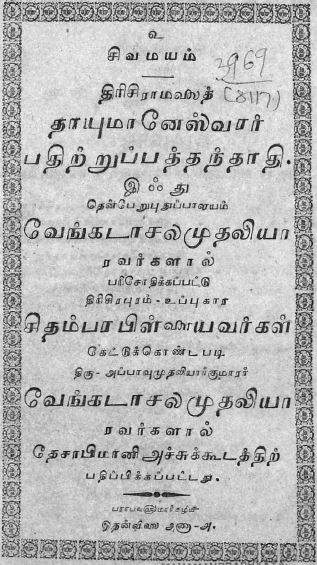 உ
சிவமயம்
3969
(8117)
திரிசிராமலைத்
தாயுமானேஸ்வரர்
பதிற்றுப்பத்தந்தாதி.
இஃது
தென்பேறுபுதுப்பாளயம்
வேங்கடாசலமுதலியா
ரவர்களால்
பரிசோதிக்கப்பட்டு
திரிசிரபுரம் - உப்புகார
சிதம்பரபிள்ளையவர்கள்
கேட்டுக்கொண்டபடி
திரு - அப்பாவுமுதலியார்குமாரர்
வேங்கடாசலமுதலியா
ரவர்களால்
தேசாபிமானிஅச்சுக்கூடத்திற்
பதிப்பிக்கப்பட்டது.
பராபவ௵மார்கழி௴
இதன்விலை அணா-அ.